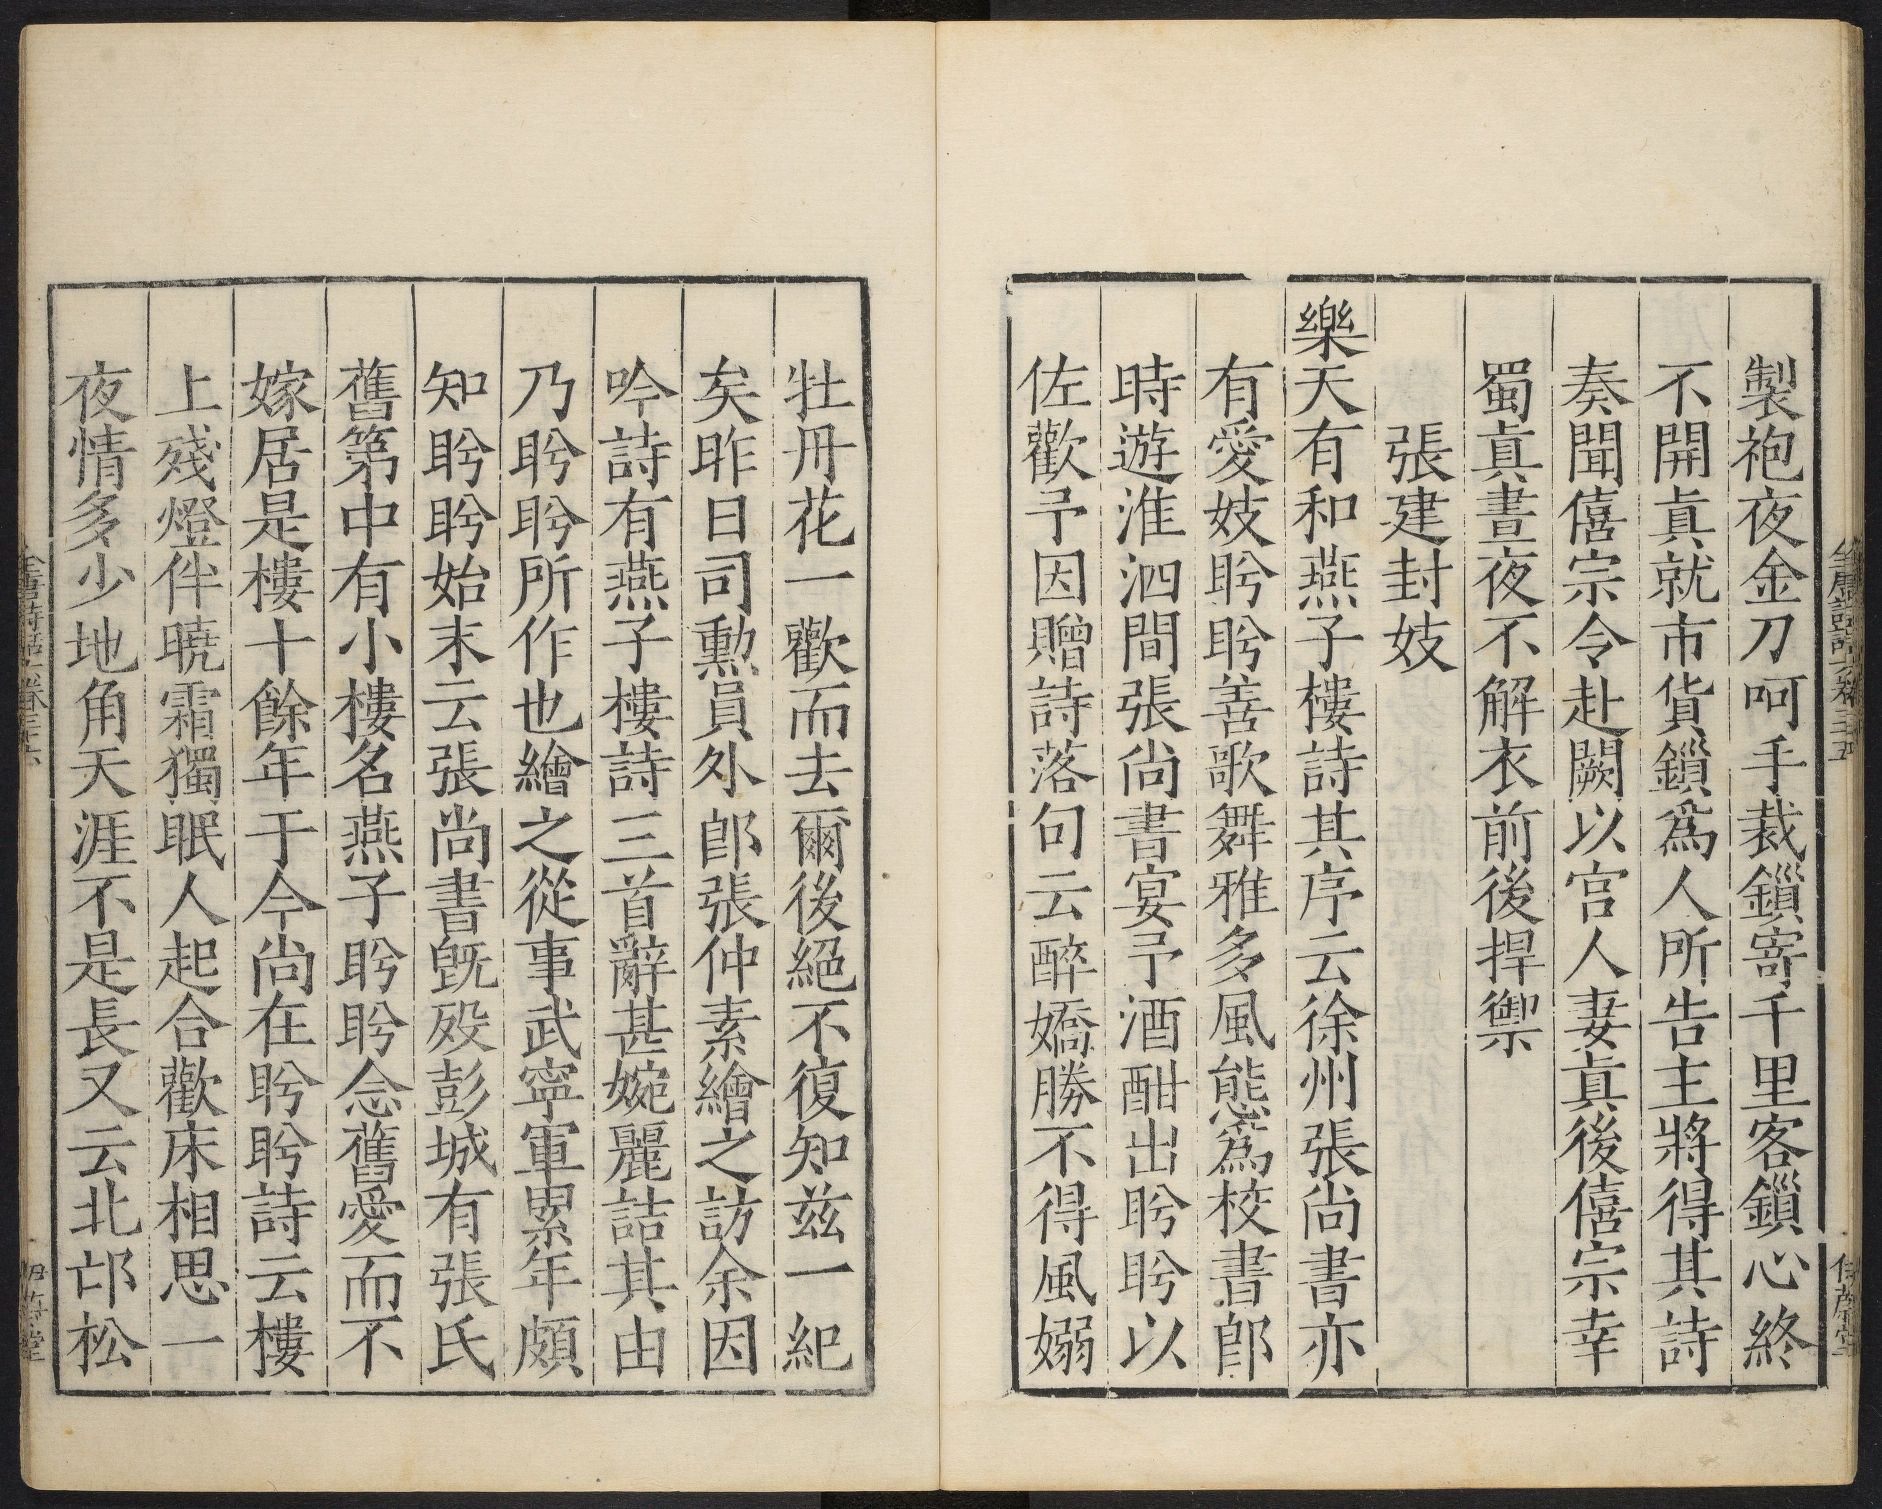 製袍夜金刀呵手裁鎻寄千里客鎻心終
不開真就市貨鎻爲人所告主將得其詩
奏聞僖宗令赴闕以宫人妻真後僖宗幸
蜀真晝夜不解衣前後捍禦
張建封妓
樂天有和燕子樓詩其序云徐州張尚書亦
有愛妓盻盻善歌舞雅多風態爲校書郎
時遊淮泗間張尚書宴予酒酣出盻盻以
佐歡予因贈詩落句云醉嬌勝不得風嫋
牡丹花一歡而去爾後絕不復知兹一紀
矣昨日司勲員外郎張仲素繪之訪余因
吟詩有燕子樓詩三首辭甚婉麗詰其由
乃盻盻所作也繪之從事武寧軍累年頗
知盻盻始末云張尚書旣殁彭城有張氏
舊第中有小樓名燕子盻盻念舊愛而不
嫁居是樓十餘年于今尚在盻盻詩云樓
上殘燈伴曉霜獨眠人起合歡床相思一
夜情多少地角天涯不是長又云北邙松